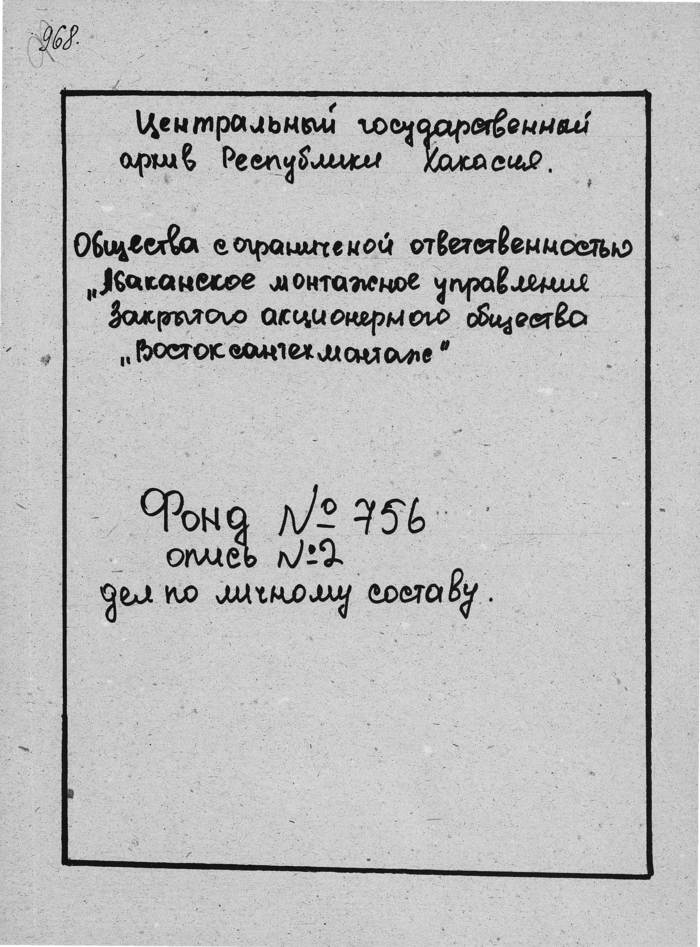 968.
Центральный государственный
архив Республики Хакасия.
Общества с ограниченой ответственностью
„Абаканское монтажное управление
Закрытого акционерного общества
„Востоксантехмонтаж"
Фонд № 756
опись №2
дел по личному составу.